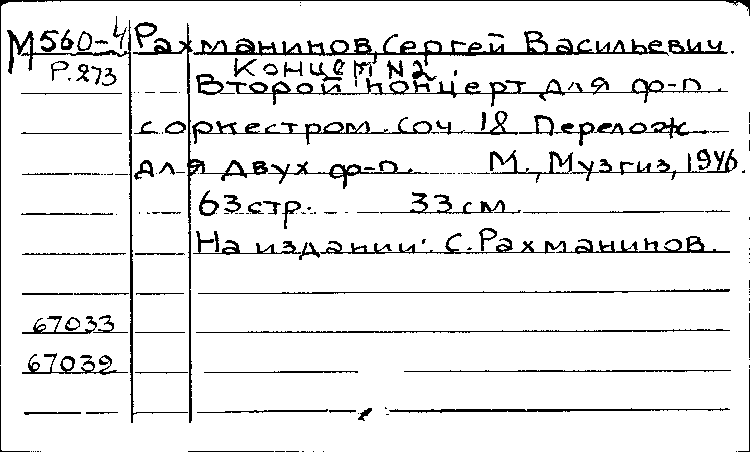 М560-4 Рахманинов, Сергей Васильевич.
Р.273 Концерт N2
Второй концерт для ф-п.
с оркестром. Соч 18 Перелож.
для двух ф-п. М., Музгиз, 1946.
63стр. 33см.
На издании: С. Рахманинов.
67033
67039